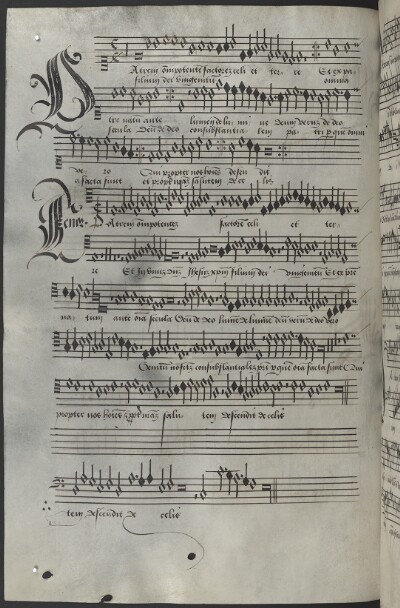 Patrem omnipotentem factorem celi et ter- re Et ex pa-
filium dei unigenitum omnia
tre natum ante lumen de lumine Deum verum de deo
secula Deum de deo consubstantialem patri per quem omnia
ve- ro Qui propter nos homines descendit
facta sunt et propter nostram salutem de celis
Tenor Patrem omnipotentem factorem celi et ter-
re Et in unum dominum Ihesum xpm filium dei unigenitum Et ex patre
na- tum ante omnia secula Deum de deo lumen de lumine deum verum de deo vero
Genitum non factum consubstantialem patri per quem omnia facta sunt Qui
propter nos homines et propter nostram salu- tem descendit de celis
tem descendit de celis